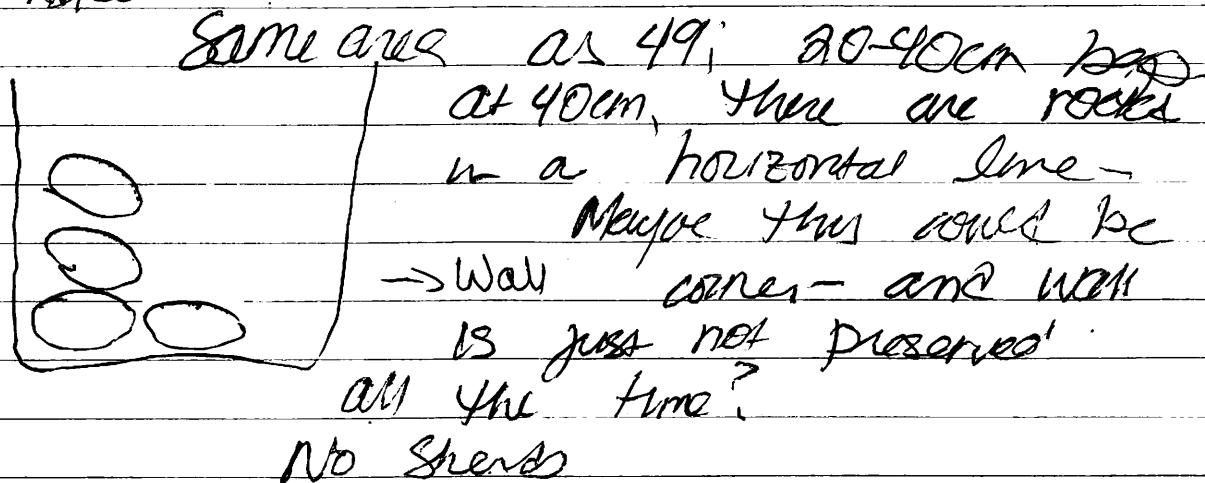 Same area as 49; 20-40cm
at 40cm, there are rocks
in a horizontal line-
Maybe this could be
→ Wall corner- and wall
is just not preserved
all the time?
No Sherds